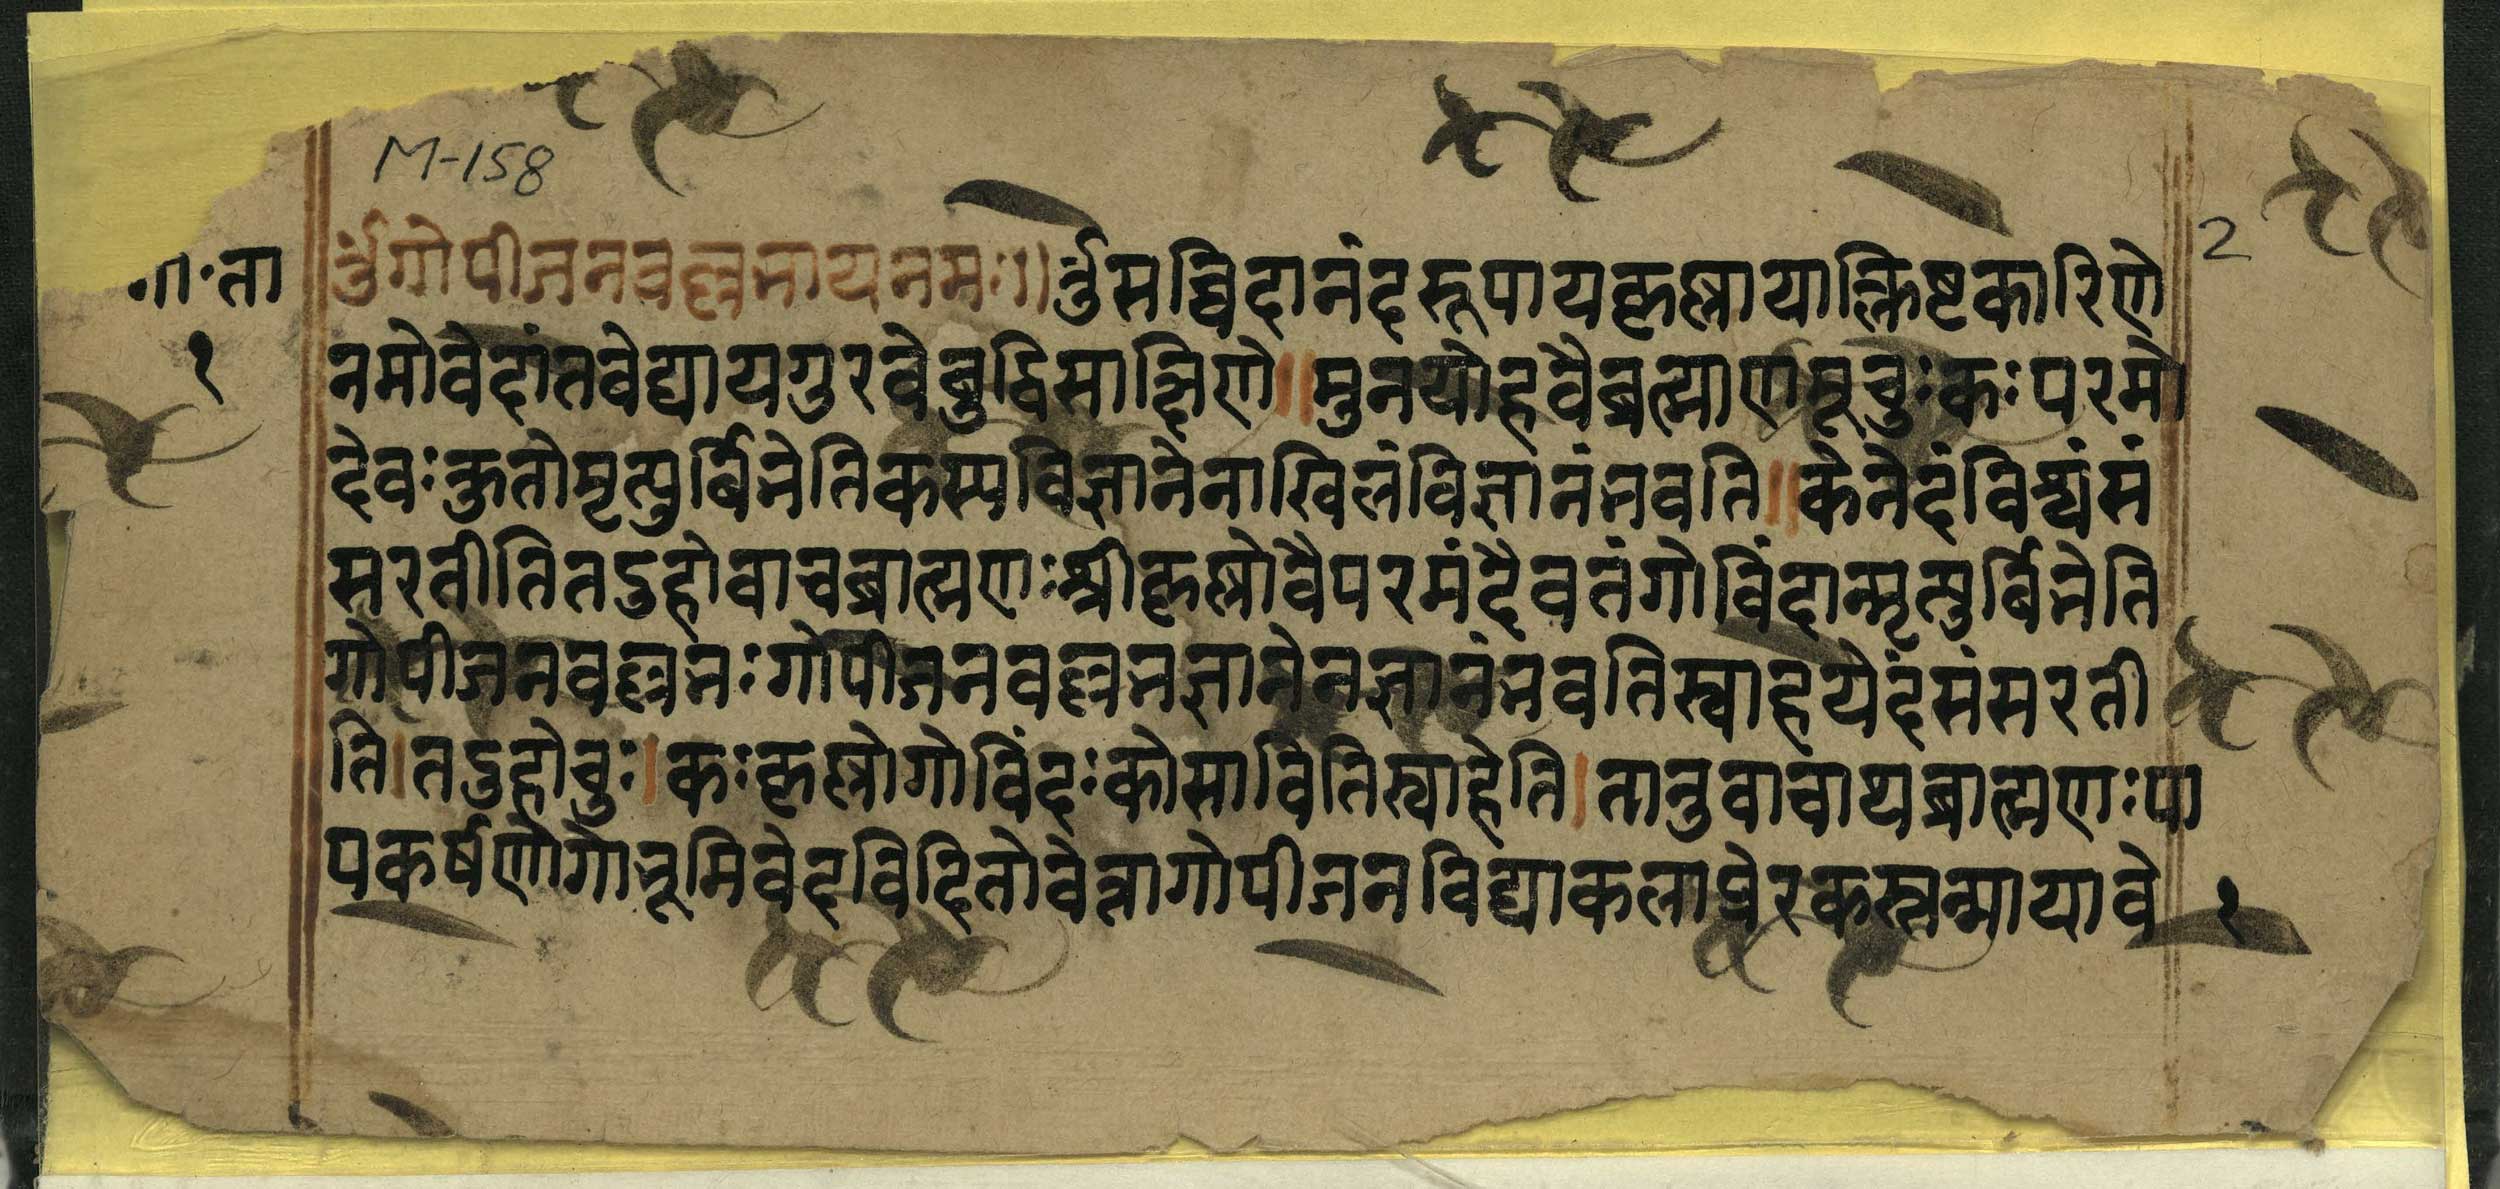 M-158
गोः ता ॐगोपीजनवल्लभायनमः॥ ॐसच्चिदानंदरूपायकृष्णायाक्लिष्टकारिणे 2
१ नमोवेदांतवेद्यायगुरवेबुद्धिसाक्षिणे॥मुनयोहवैब्रह्माणमूचुःकःपरमो
देवःकुतोमृत्युर्बिभेतिकस्यविज्ञानेनाखिलंविज्ञानंभवति॥केनेदंविश्वंसं
सरतीतितउहोवाचब्राह्मणःश्रीकृष्णोवैपरमंदैवतंगोविंदान्मृत्युर्बिभेति
गोपीजनवल्लभःगोपीजनवल्लभज्ञानेनज्ञानंभवतिस्वाहयेदंसंसरती
ति।तउहोचुः।कःकृष्णोगोविंदःकोसावितिस्वाहेति।तानुवाचाथब्राह्मणःपा
पकर्षणोगोभूमिवेदविदितोवेत्तागोपीजनविद्याकलाप्रेरकस्तन्मायावे १